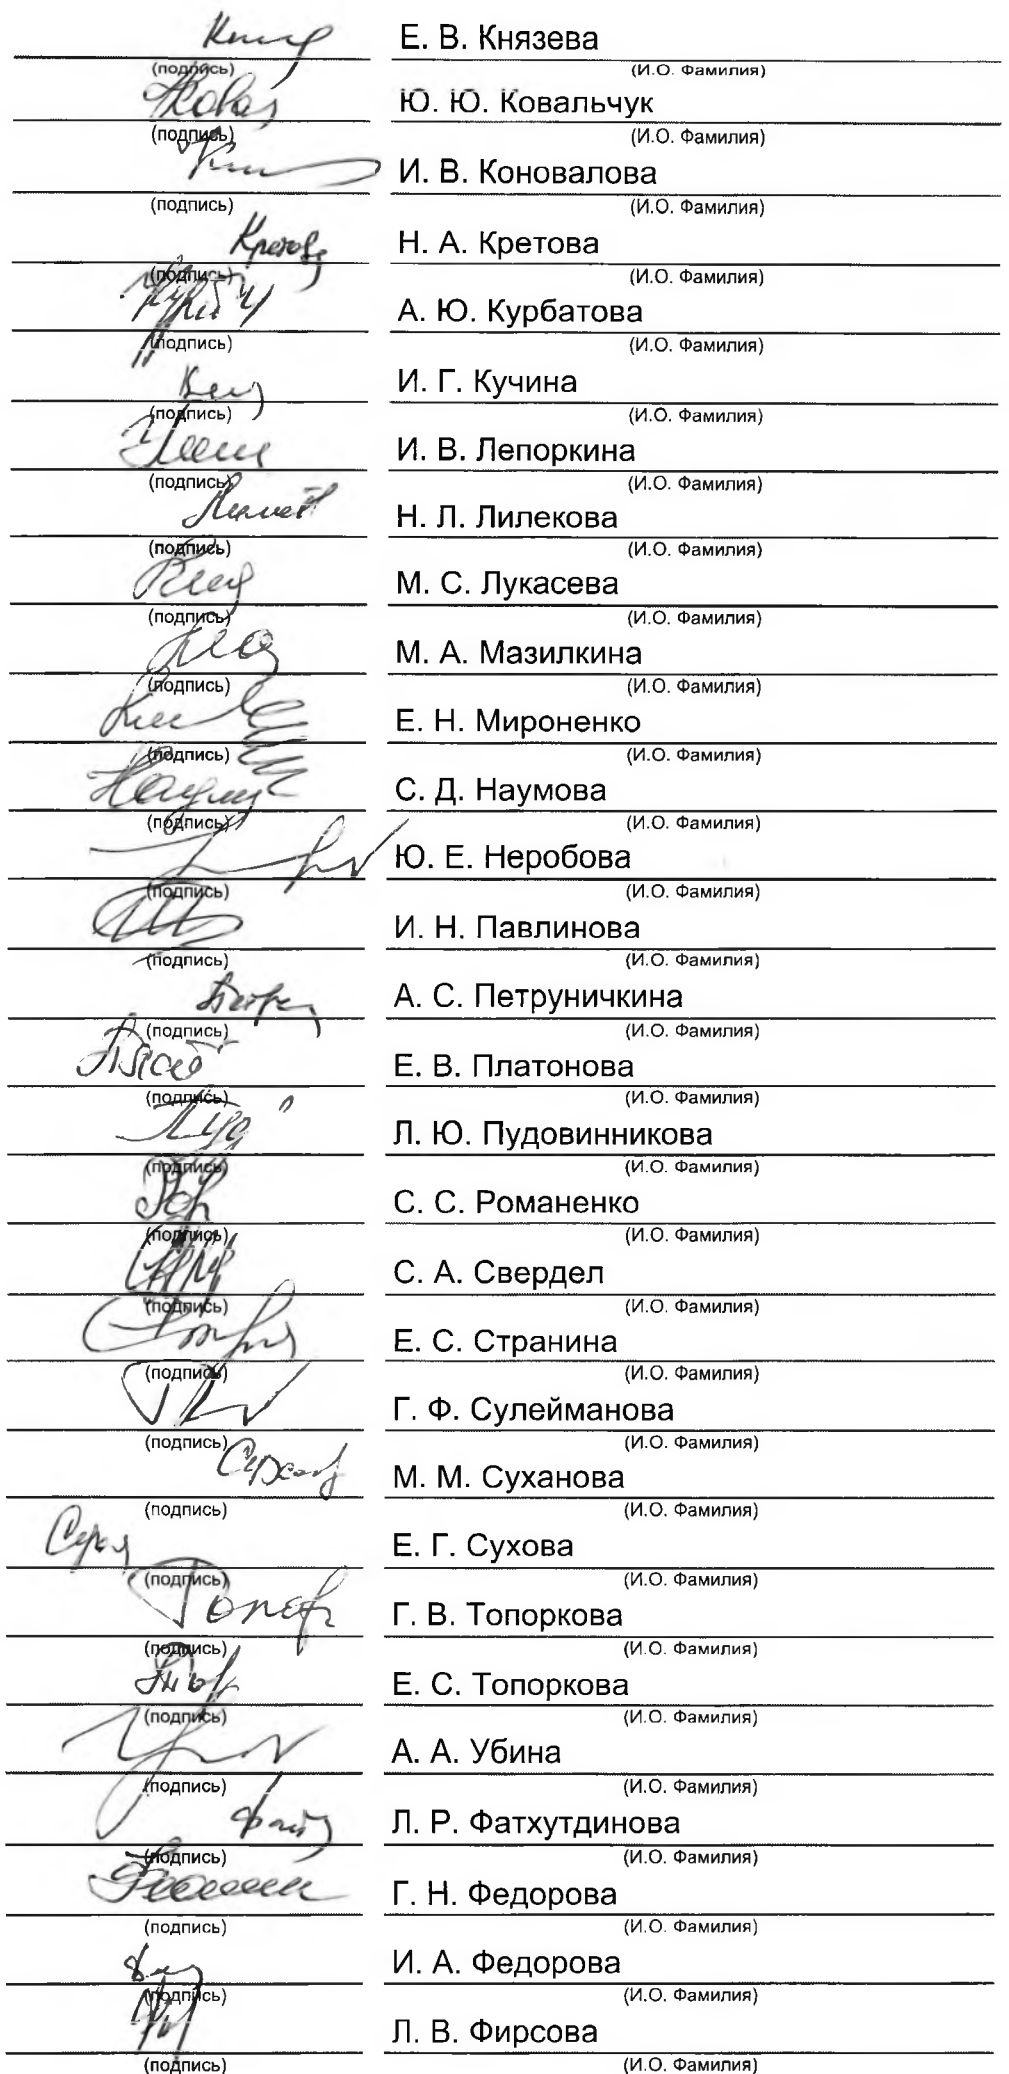 Е. В. Князева
(подпись) (И.О. Фамилия)
Ю. Ю. Ковальчук
(подпись) (И.О. Фамилия)
И. В. Коновалова
(подпись) (И.О. Фамилия)
Н. А. Кретова
(подпись) (И.О. Фамилия)
А. Ю. Курбатова
(подпись) (И.О. Фамилия)
И. Г. Кучина
(подпись) (И.О. Фамилия)
И. В. Лепоркина
(подпись) (И.О. Фамилия)
Н. Л. Лилекова
(подпись) (И.О. Фамилия)
М. С. Лукасева
(подпись) (И.О. Фамилия)
М. А. Мазилкина
(подпись) (И.О. Фамилия)
Е. Н. Мироненко
(подпись) (И.О. Фамилия)
С. Д. Наумова
(подпись) (И.О. Фамилия)
Ю. Е. Неробова
(подпись) (И.О. Фамилия)
И. Н. Павлинова
(подпись) (И.О. Фамилия)
А. С. Петруничкина
(подпись) (И.О. Фамилия)
Е. В. Платонова
(подпись) (И.О. Фамилия)
Л. Ю. Пудовинникова
(подпись) (И.О. Фамилия)
С. С. Романенко
(подпись) (И.О. Фамилия)
С. А. Свердел
(подпись) (И.О. Фамилия)
Е. С. Странина
(подпись) (И.О. Фамилия)
Г. Ф. Сулейманова
(подпись) (И.О. Фамилия)
М. М. Суханова
(подпись) (И.О. Фамилия)
Е. Г. Сухова
(подпись) (И.О. Фамилия)
Г. В. Топоркова
(подпись) (И.О. Фамилия)
Е. С. Топоркова
(подпись) (И.О. Фамилия)
А. А. Убина
(подпись) (И.О. Фамилия)
Л. Р. Фатхутдинова
(подпись) (И.О. Фамилия)
Г. Н. Федорова
(подпись) (И.О. Фамилия)
И. А. Федорова
(подпись) (И.О. Фамилия)
Л. В. Фирсова
(подпись) (И.О. Фамилия)